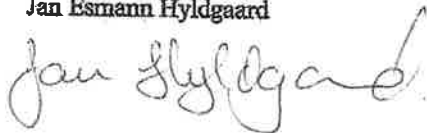 Jan Esmann Hyldgaard
Jan Hyldgaard